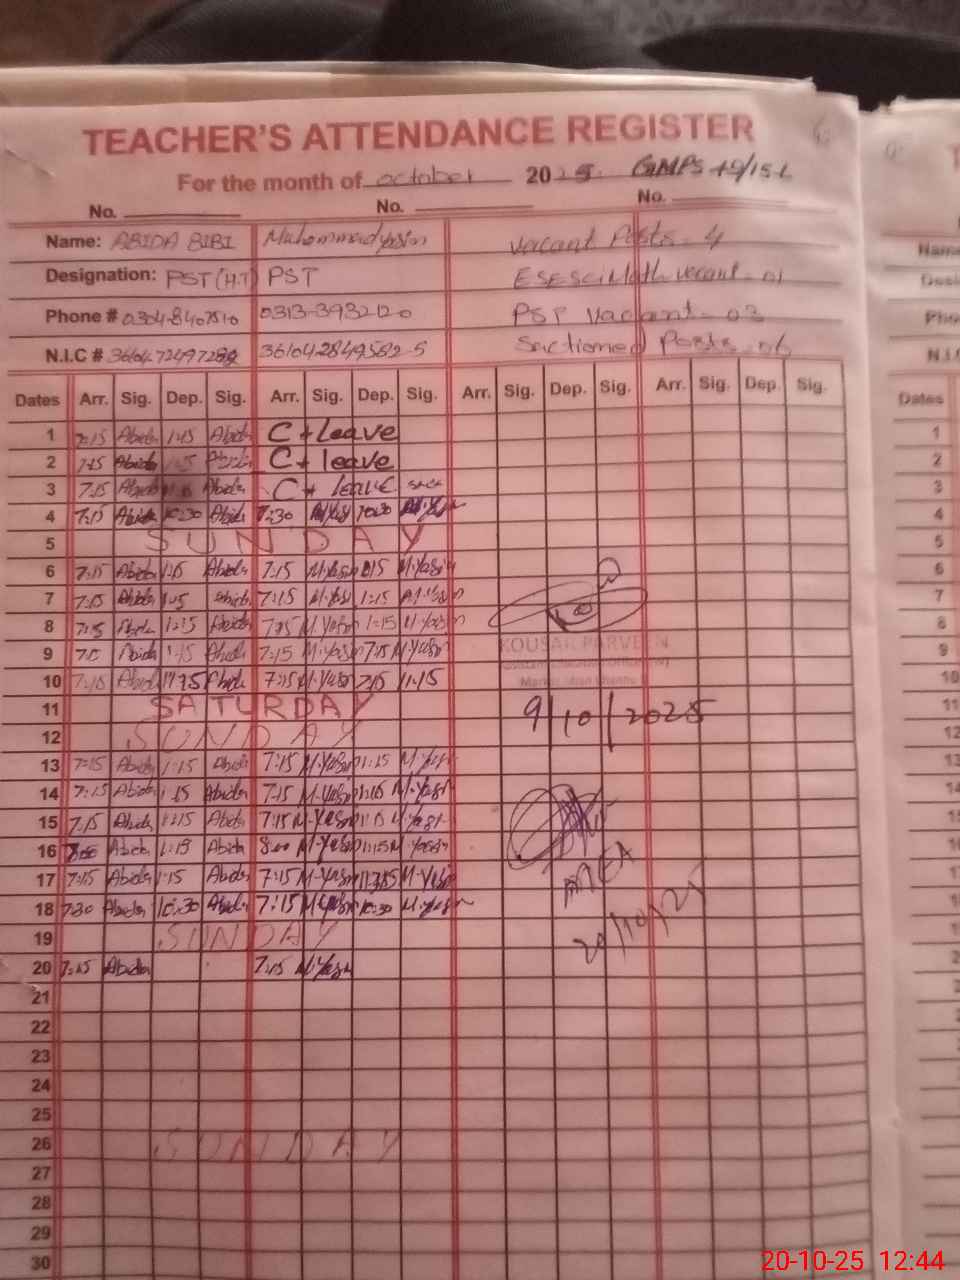 TEACHER'S ATTENDANCE REGISTER
For the month of october 2025 GMPS 49/15-L
No. No. No.
Name: ABIDA BIBI Muhammad yasin vacant Posts - 4
Designation: PST (H.T) PST ESE Sci Math vacant - 01
Phone # 0304-8407510 0313-3932120 PST vacant - 03
N.I.C # 36104 Sactioned Posts - 06
Dates Arr. Sig. Dep. Sig. Arr. Sig. Dep. Sig. Arr. Sig. Dep. Sig. Arr. Sig. Dep. Sig.
1 7:15 Abida 1:15 Abida C + Leave
2 7:15 Abida Abida C + leave
3 7:15 Abida Abida C + leave
4 7:15 Abida 10:30 Abida 7:30 M.Yasin 10:30 M.Yasin
5 SUNDAY
6 7:15 Abida 1:15 Abida 7:15 M.Yasin 1:15 M.Yasin
7 7:15 Abida 1:15 Abida 7:15 M.Yasin 1:15 M.Yasin
8 7:15 Abida 1:15 Abida 7:15 M.Yasin 1:15 M.Yasin
9 7:15 Abida 1:15 Abida 7:15 M.Yasin 7:15 M.Yasin
KOUSAR PARVEEN
10 7:15 Abida Abida 7:15 M.Yasin 11:15
11 SATURDAY 9/10/2025
12 SUNDAY
13 7:15 Abida 1:15 Abida 7:15 M.Yasin 1:15 M.Yasin
14 7:15 Abida 1:15 Abida 7:15 M.Yasin 1:15 M.Yasin
15 7:15 Abida 1:15 Abida 7:15 M.Yasin 1:15 M.Yasin
16 8:00 Abida 1:15 Abida 8:00 M.Yasin 1:15 M.Yasin
17 7:15 Abida 1:15 Abida 7:15 M.Yasin M.Yasin
MEA
18 7:30 Abida 10:30 Abida 7:15 M.Yasin 10:30 M.Yasin
20/10/25
19 SUNDAY
20 7:15 Abida 7:15 M.Yasin
21
22
23
24
25
26 SUNDAY
27
28
29
30
Dates
1
2
3
4
5
6
7
8
9
10
11
12
20-10-25 12:44